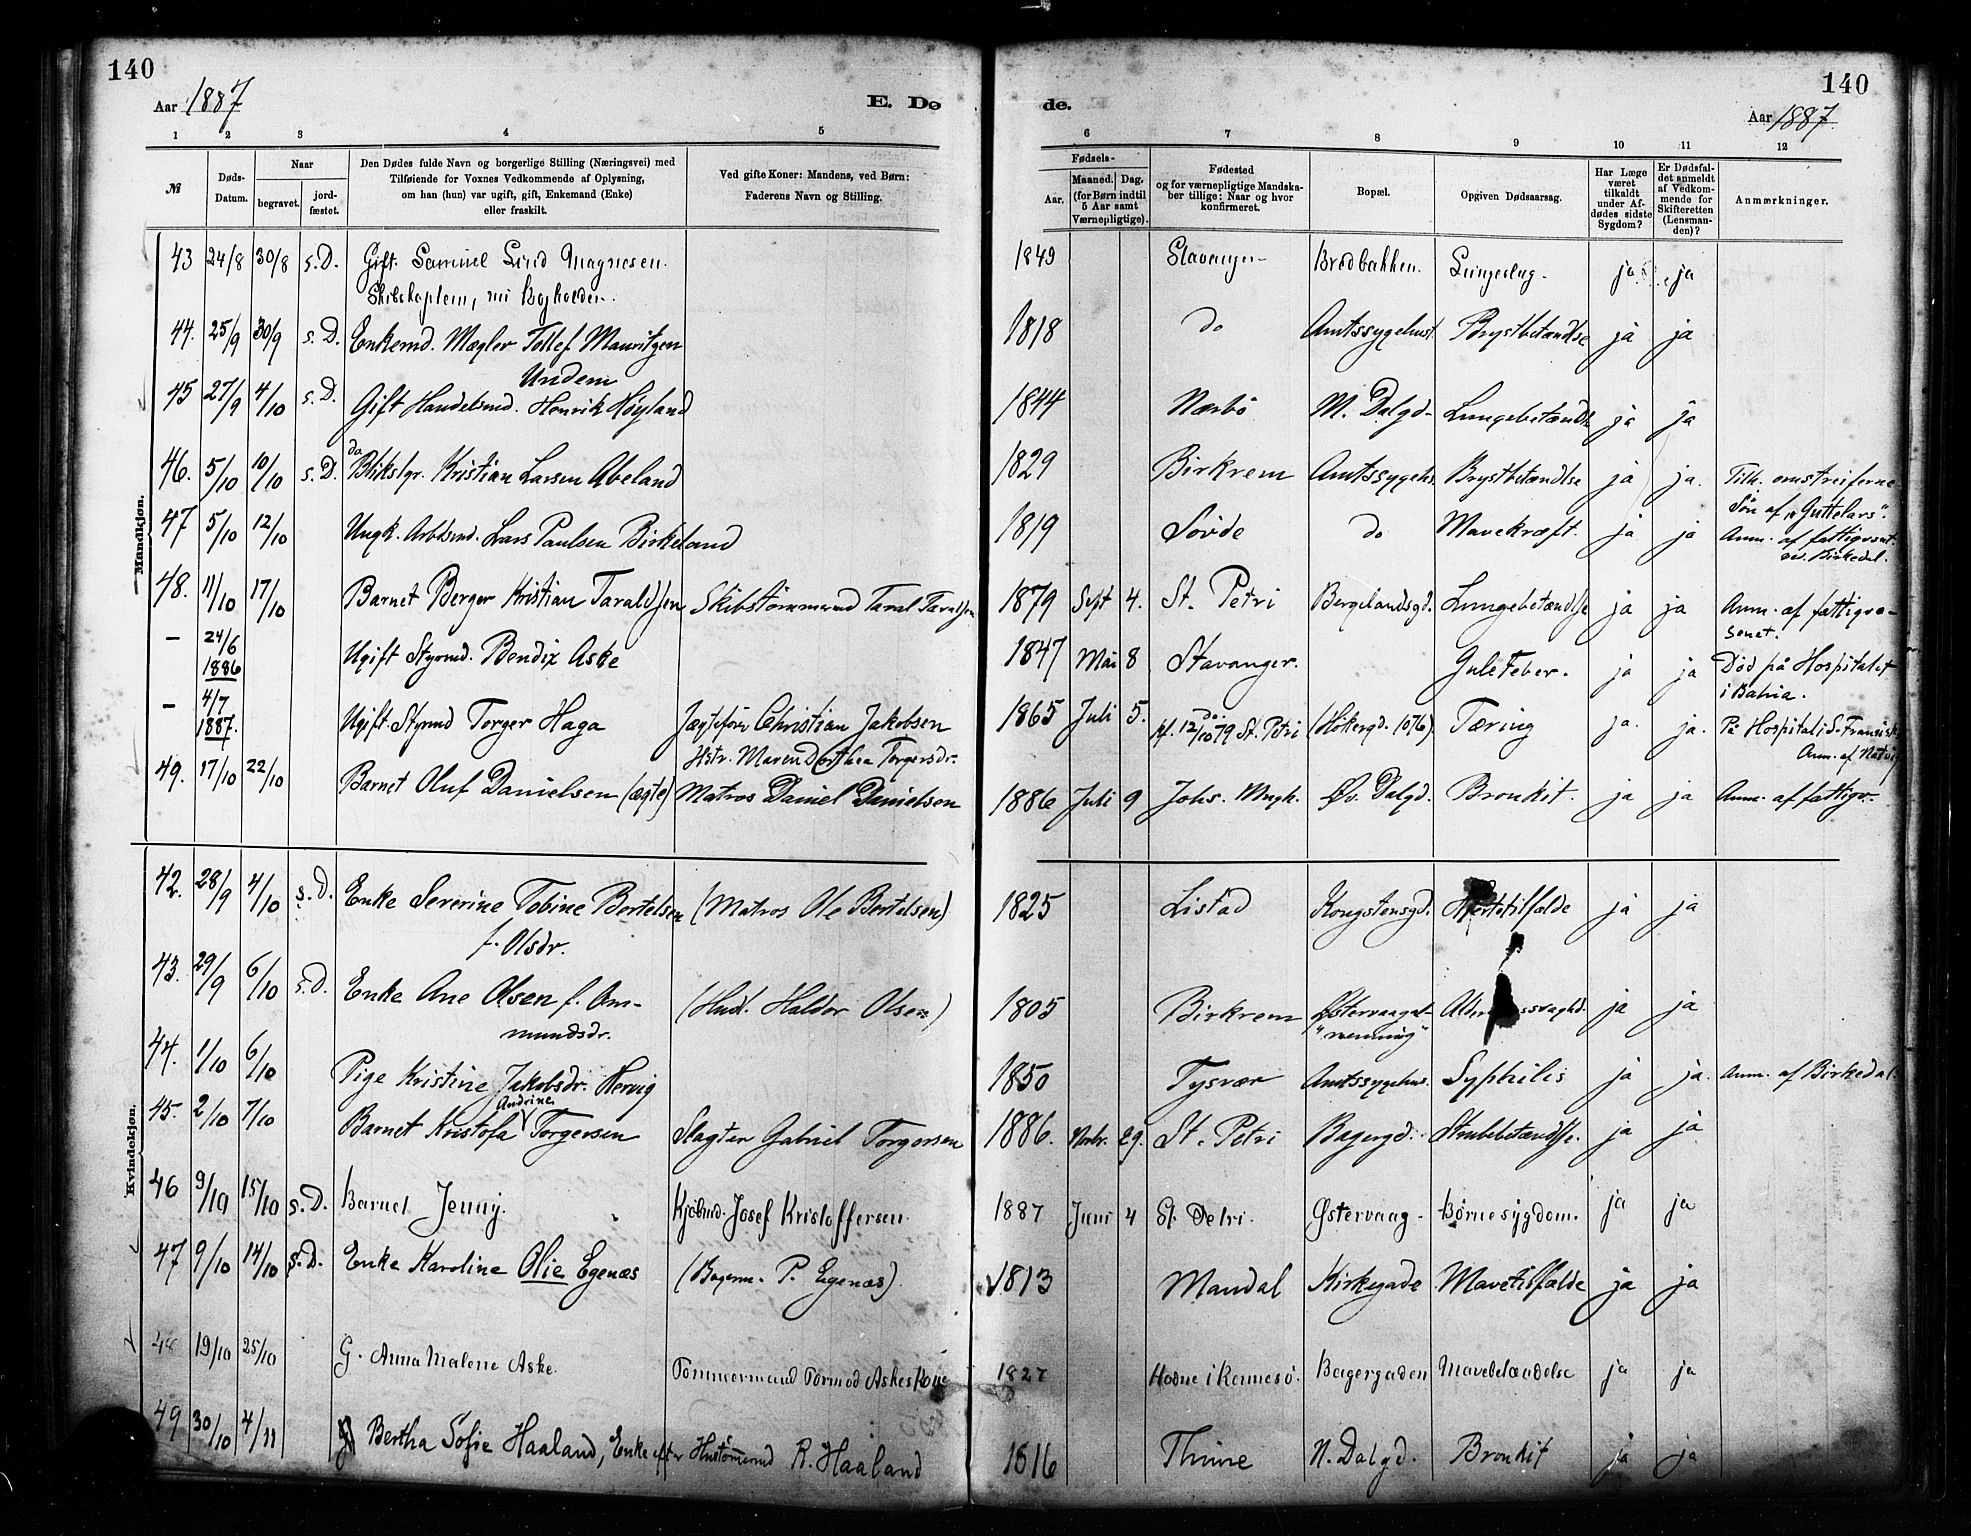 140
140
Aar 1887
E. Dø
de.
Aar 1887.
1 2 3 4 5 6 7 8 9 10 11 12
№
Døds-Datum.
Naar
begravet.
jord-fæstet.
Den Dødes fulde Navn og borgerlige Stilling (Næringsvei) med
Tilføiende for Voxnes Vedkommende af Oplysning,
om han (hun) var ugift, gift, Enkemand (Enke)
eller fraskilt.
Ved gifte Koner: Mandens, ved Børn:
Faderens Navn og Stilling.
Fødsels-
Aar.
Maaned. Dag.
(for Børn indtil
5 Aar samt
Værnepligtige).
Fødested
og for værnepligtige Mandska-
ber tillige: Naar og hvor
konfirmeret.
Bopæl.
Opgiven Dødsaarsag.
Har Læge
været
tilkaldt
under Af-
dødes sidste
Sygdom?
Er Dødsfal-
det anmeldt
af Vedkom-
mende for
Skifteretten
(Lensman-
den)?
Anmærkninger.
Mandkjøn.
43 24/8 30/8 s.D. Gift. Samuel Lind Magnesen. 1849 Stavanger Bredbakken. ja ja
44. 25/9 30/9 s.D. Enkemd. Mægler Tollef Mauritzen 1818 do Amtssygehust. Brystbetændlse ja ja
Undem
45 27/9 4/10 s.D. Gift Handelsmd. Henrik Høyland 1844 Nærbø M. Dalgd. Lungebetændls ja ja
46. 5/10 10/10 s.D. do Blikslgr. Kristian Larsen Abeland 1829 Birkrem Amtssygehs. Brystbetændlse ja ja. Tilh. omstreiferne
Søn af "Guttelars".
47 5/10 12/10 Ungk. Arbdsmd. Lars Paulsen Birkeland 1819 Søvde do Mavekræft. ja ja Anm. af fattigvænt.
Birkedal.
48. 11/10 17/10 Barnet Berger Kristian Taraldsen Skibstømmermd Taral Taraldsen 1879 Sept 4. St. Petri Bergelandsgd. Lungebetændlse ja ja Anm. af fattigvæ-
senet.
– 24/6 1886 Ugift Styrmd. Bendix Aske 1847 Mai 8 Stavanger. Gule Feber. ja ja Død på Hospitalet
i Bahia.
– 4/7 1887. Ugift Styrmd Torger Haga Jægtefører Christian Jakobsen 1865 Juli 5. do. kf. 12/10 79 St. Petri (Hökergd. 1076). Tæring ja. ja. På Hospital i S. Fransisk.
Hstr. Maren Dorthea Torgersdr.
49. 17/10 22/10 Barnet Oluf Danielsen (ægte) Matros Daniel Danielsen 1886 Juli 9 Johs. Mngh. Øv. Dalgd. Bronkit. ja ja Anm. af fattigv.
Kvindekjøn.
42. 28/9 4/10 s.D. Enke Severine Tobine Bertelsen (Matros Ole Bertelsen) 1825 Listad Kongstensgd. Hjertetilfælde ja ja
f. Olsdr.
43. 29/9 6/10 s.D. Enke Ane Olsen f. Am- (Husf. Haldor Olsen) 1805 Birkrem ja ja
mundsdr.
44. 1/10 6/10 Pige Kristine Jakobsdr. Hervig 1850 Tysvær Amtssygehus. Syphilis ja ja. Anm. af Birkedal.
45. 2/10 7/10 Barnet Kristofa Andrine Torgersen Slagter Gabriel Torgersen 1886. Novbr. 29. St. Petri Bagergd. Strubebetændlse. ja ja
46 9/10 15/10 s.D. Barnet Jenny. Kjøbmd. Josef Kristoffersen. 1887 Juni 4 St. Petri. Østervaag. Børnesygdom. ja ja
47 9/10 14/10 s.D. Enke Karoline Olie Egenæs (Bagerm. P. Egenæs). 1813 Mandal Kirkegade Mavetilfælde ja ja
48 19/10 25/10 G. Anna Malene Aske. Tømmermand Tormod Askes Kone 1827 Hodne i Rennesø. Bagergaden Mavebetændelse ja ja
49 30/10 4/11 Bertha Sofie Haaland, Enke efter Hustømmermd R. Haaland 1816 Thime N. Dalgd. Bronkit ja ja